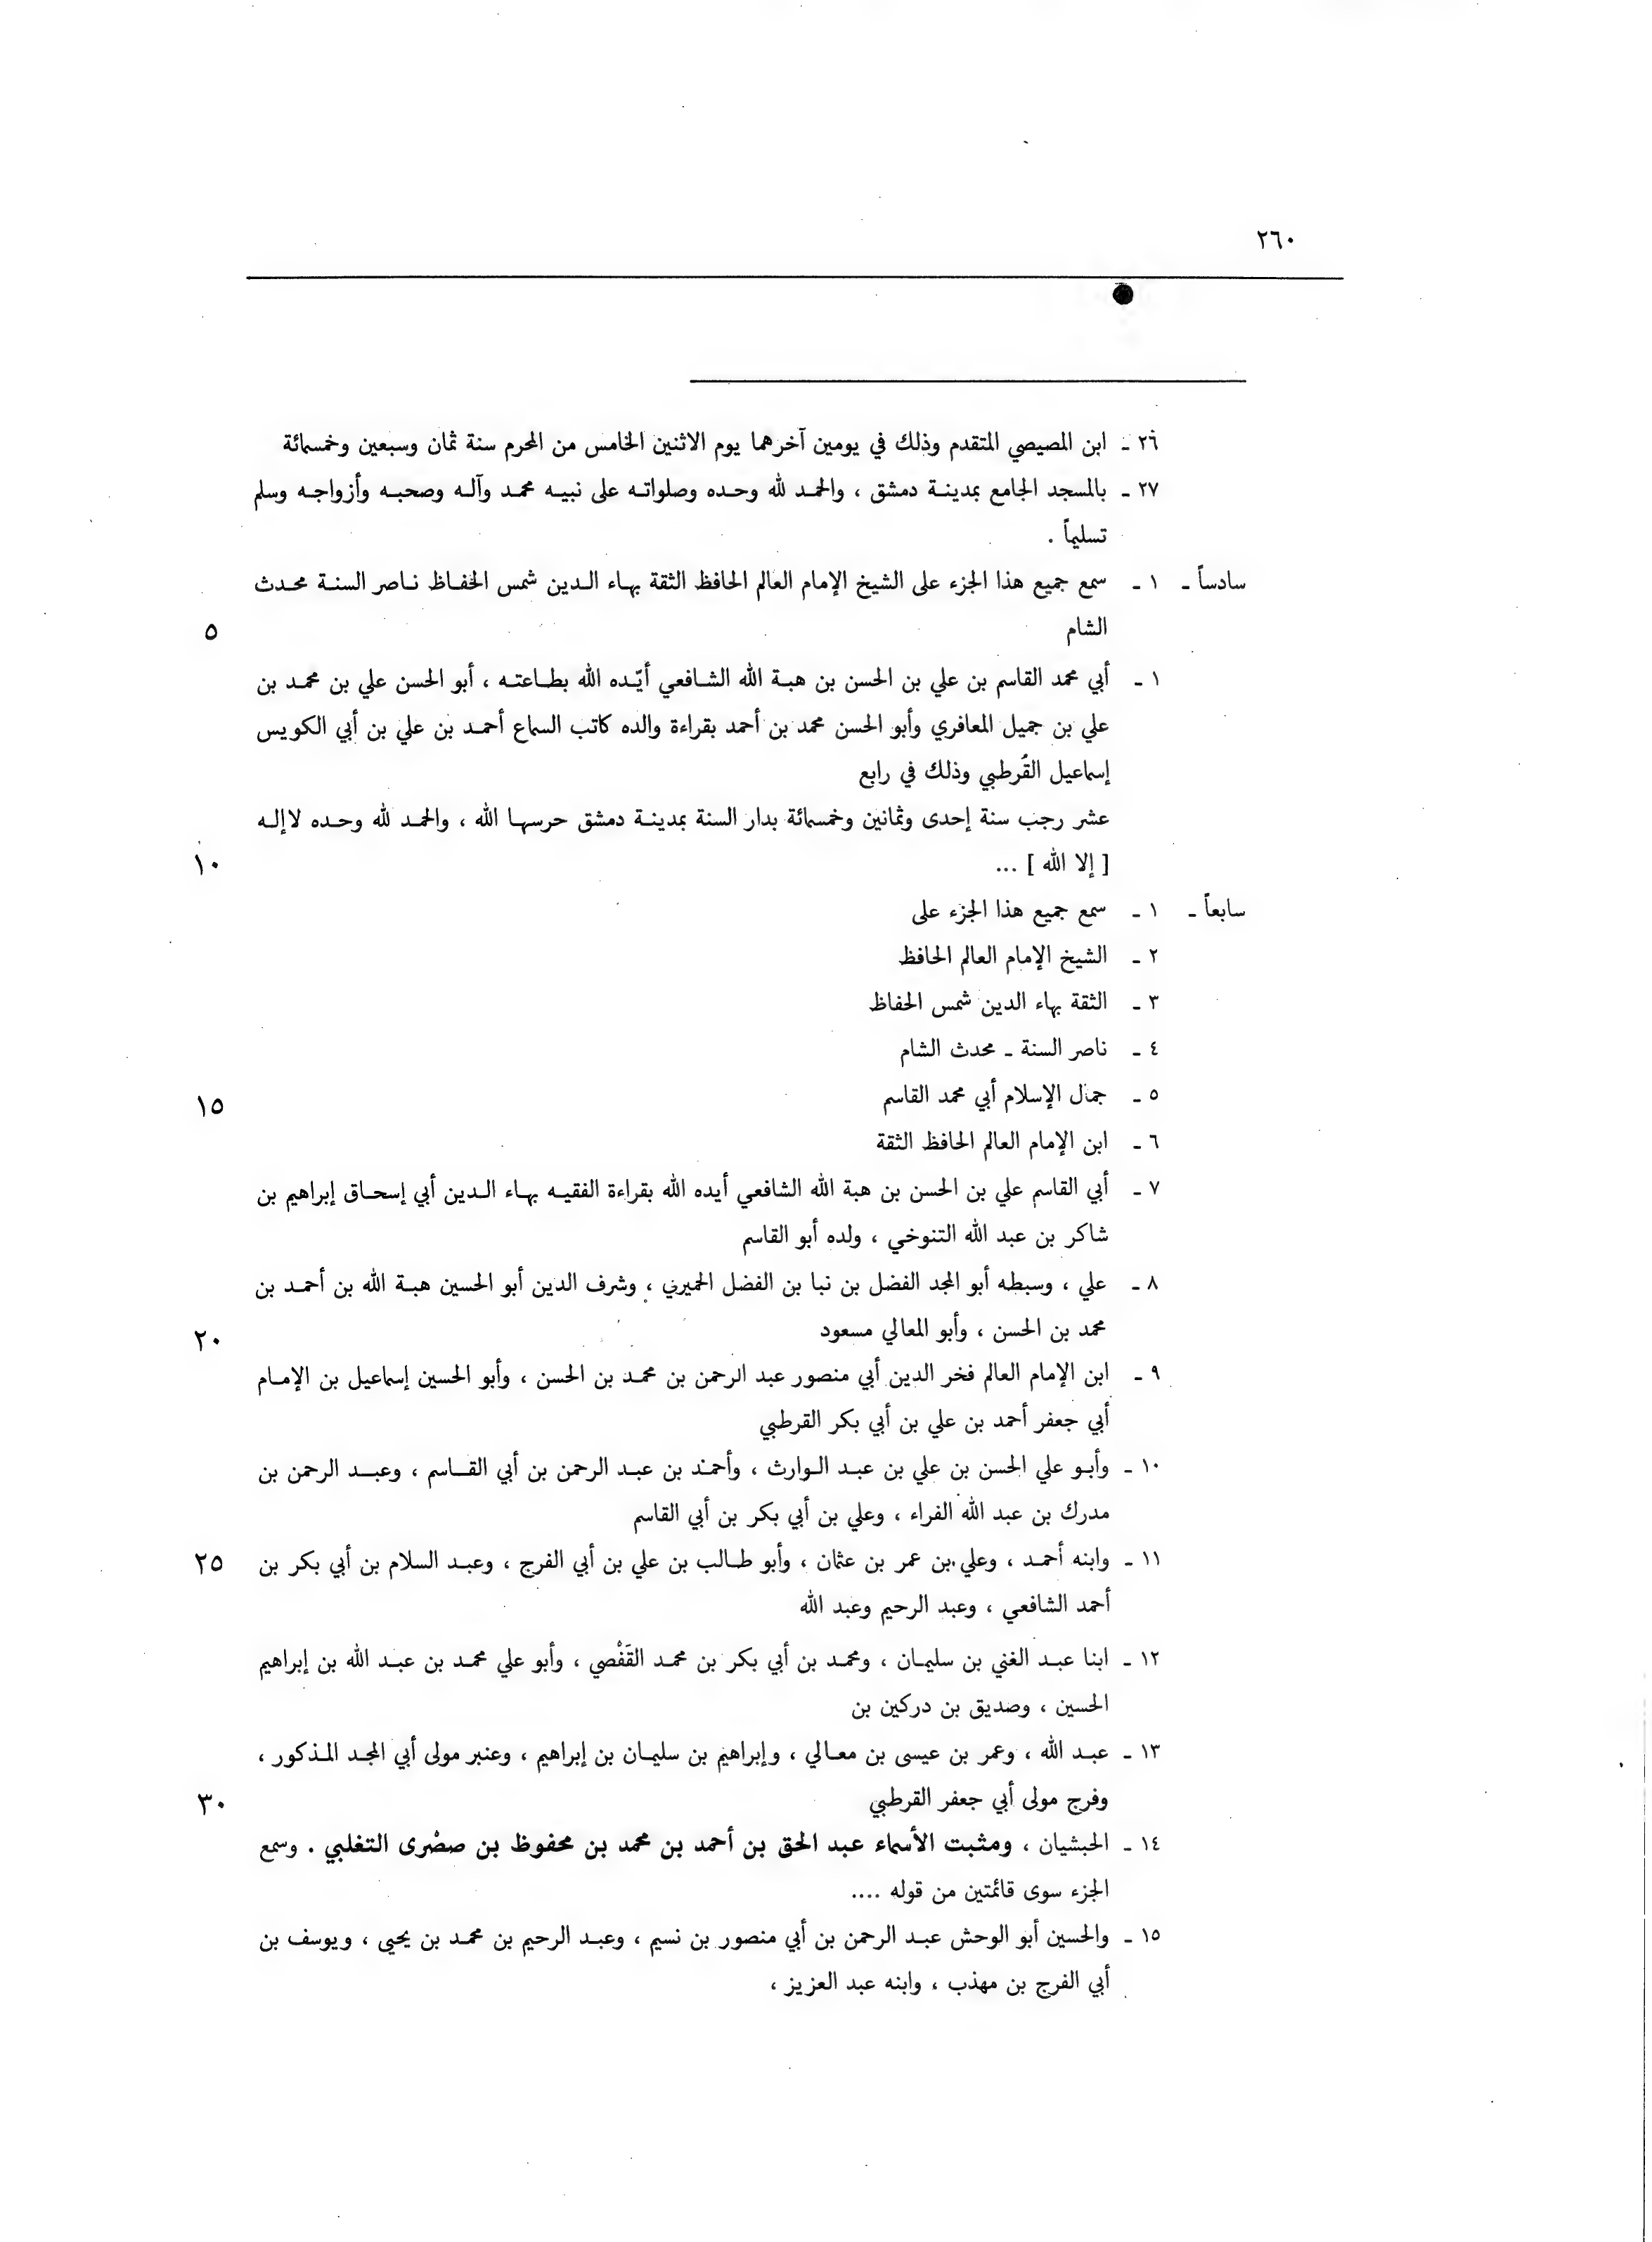 ٢٦٠
٢٦ ـ ابن المصيصي المتقدم وذلك في يومين آخرهما يوم الاثنين الخامس من المحرم سنة ثمان وسبعين وخمسمائة
٢٧ ـ بالمسجد الجامع بمدينة دمشق ، والحمد لله وحده وصلواته على نبيه محمد وآله وصحبه وأزواجه وسلم
تسليماً .
سادساً ـ ١ ـ سمع جميع هذا الجزء على الشيخ الإمام العالم الحافظ الثقة بهاء الدين شمس الحفاظ ناصر السنة محدث
الشام
٥
١ ـ أبي محمد القاسم بن علي بن الحسن بن هبة الله الشافعي أيّده الله بطاعته ، أبو الحسن علي بن محمد بن
علي بن جميل المعافري وأبو الحسن محمد بن أحمد بقراءة والده كاتب السماع أحمد بن علي بن أبي الكويس
إسماعيل القُرطبي وذلك في رابع
عشر رجب سنة إحدى وثمانين وخمسمائة بدار السنة بمدينة دمشق حرسها الله ، والحمد لله وحده لا إله
[ إلا الله ] ...
١٠
سابعاً ـ ١ ـ سمع جميع هذا الجزء على
٢ ـ الشيخ الإمام العالم الحافظ
٣ ـ الثقة بهاء الدين شمس الحفاظ
٤ ـ ناصر السنة ـ محدث الشام
٥ ـ جمال الإسلام أبي محمد القاسم
١٥
٦ ـ ابن الإمام العالم الحافظ الثقة
٧ ـ أبي القاسم علي بن الحسن بن هبة الله الشافعي أيده الله بقراءة الفقيه بهاء الدين أبي إسحاق إبراهيم بن
شاكر بن عبد الله التنوخي ، ولده أبو القاسم
٨ ـ علي ، وسبطه أبو المجد الفضل بن نبا بن الفضل الحميري ، وشرف الدين أبو الحسين هبة الله بن أحمد بن
محمد بن الحسن ، وأبو المعالي مسعود
٢٠
٩ ـ ابن الإمام العالم فخر الدين أبي منصور عبد الرحمن بن محمد بن الحسن ، وأبو الحسين إسماعيل بن الإمام
أبي جعفر أحمد بن علي بن أبي بكر القرطبي
١٠ ـ وأبو علي الحسن بن علي بن عبد الوارث ، وأحمد بن عبد الرحمن بن أبي القاسم ، وعبد الرحمن بن
مدرك بن عبد الله الفراء ، وعلي بن أبي بكر بن أبي القاسم
١١ ـ وابنه أحمد ، وعلي بن عمر بن عثمان ، وأبو طالب بن علي بن أبي الفرج ، وعبد السلام بن أبي بكر بن
٢٥
أحمد الشافعي ، وعبد الرحيم وعبد الله
١٢ ـ ابنا عبد الغني بن سليمان ، ومحمد بن أبي بكر بن محمد القَفْصي ، وأبو علي محمد بن عبد الله بن إبراهيم
الحسين ، وصديق بن دركين بن
١٣ ـ عبد الله ، وعمر بن عيسى بن معالي ، وإبراهيم بن سليمان بن إبراهيم ، وعنبر مولى أبي المجد المذكور ،
وفرج مولى أبي جعفر القرطبي
٣٠
١٤ ـ الحبشيان ، ومثبت الأسماء عبد الحق بن أحمد بن محمد بن محفوظ بن صصْرى التغلبي . وسمع
الجزء سوى قائمتين من قوله ....
١٥ ـ والحسين أبو الوحش عبد الرحمن بن أبي منصور بن نسيم ، وعبد الرحيم بن محمد بن يحيى ، ويوسف بن
أبي الفرج بن مهذب ، وابنه عبد العزيز ،